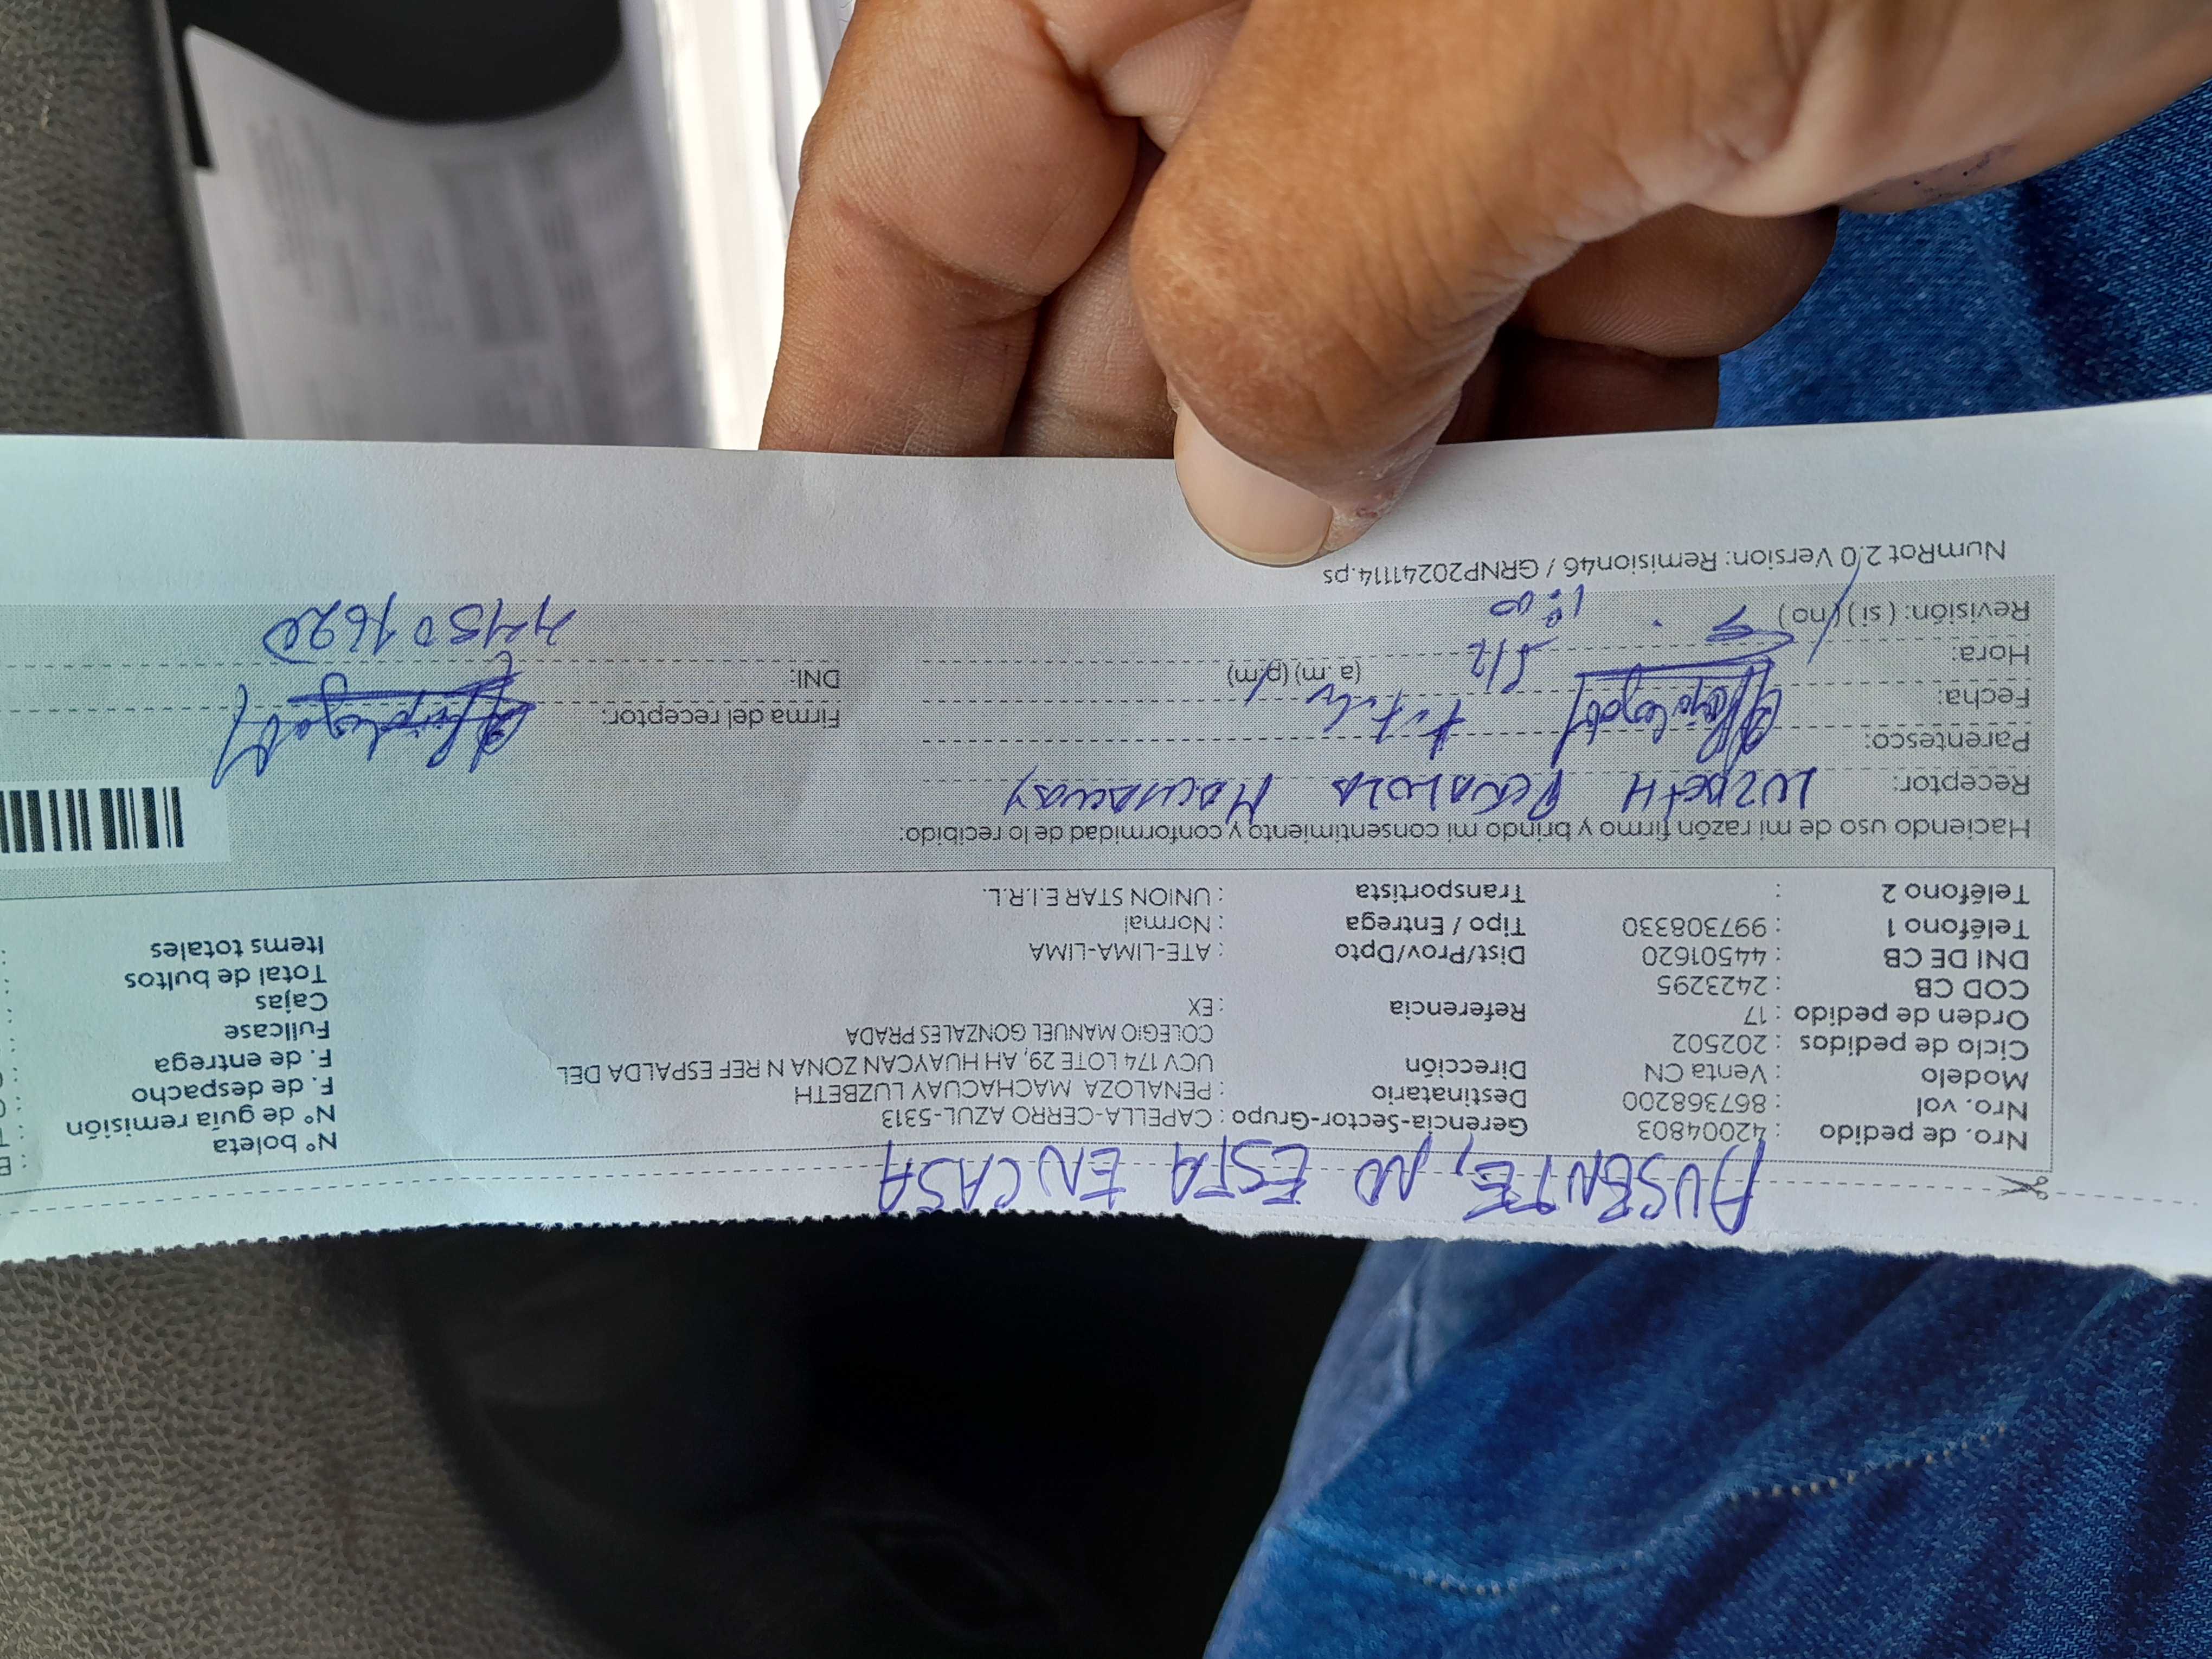 AUSENTE, NO ESTA EN CASA
Nro. de pedido : 42004803
Nro. vol : 867368200
Modelo : Venta CN
Ciclo de pedidos : 202502
Orden de pedido : 17
COD CB : 2423295
DNI DE CB : 44501620
Teléfono 1 : 997308330
Teléfono 2 :
Gerencia-Sector-Grupo : CAPELLA-CERRO AZUL-5313
Destinatario : PENALOZA MACHACUAY LUZBETH
Dirección UCV 174 LOTE 29, AH HUAYCAN ZONA N REF ESPALDA DEL
COLEGIO MANUEL GONZALES PRADA
Referencia : EX
Dist/Prov/Dpto : ATE-LIMA-LIMA
Tipo / Entrega : Normal
Transportista : UNION STAR E.I.R.L.
N° boleta :
N° de guía remisión :
F. de despacho :
F. de entrega :
Fullcase :
Cajas :
Total de bultos :
Items totales :
Haciendo uso de mi razón firmo y brindo mi consentimiento y conformidad de lo recibido:
Receptor: LUZBETH
Parentesco:
Fecha:
Hora: (a.m) (p.m)
Revisión: (si) (no)
Firma del receptor:
DNI: 44501620
NumRot 2.0 Version: Remision46 / GRNP20241114.ps